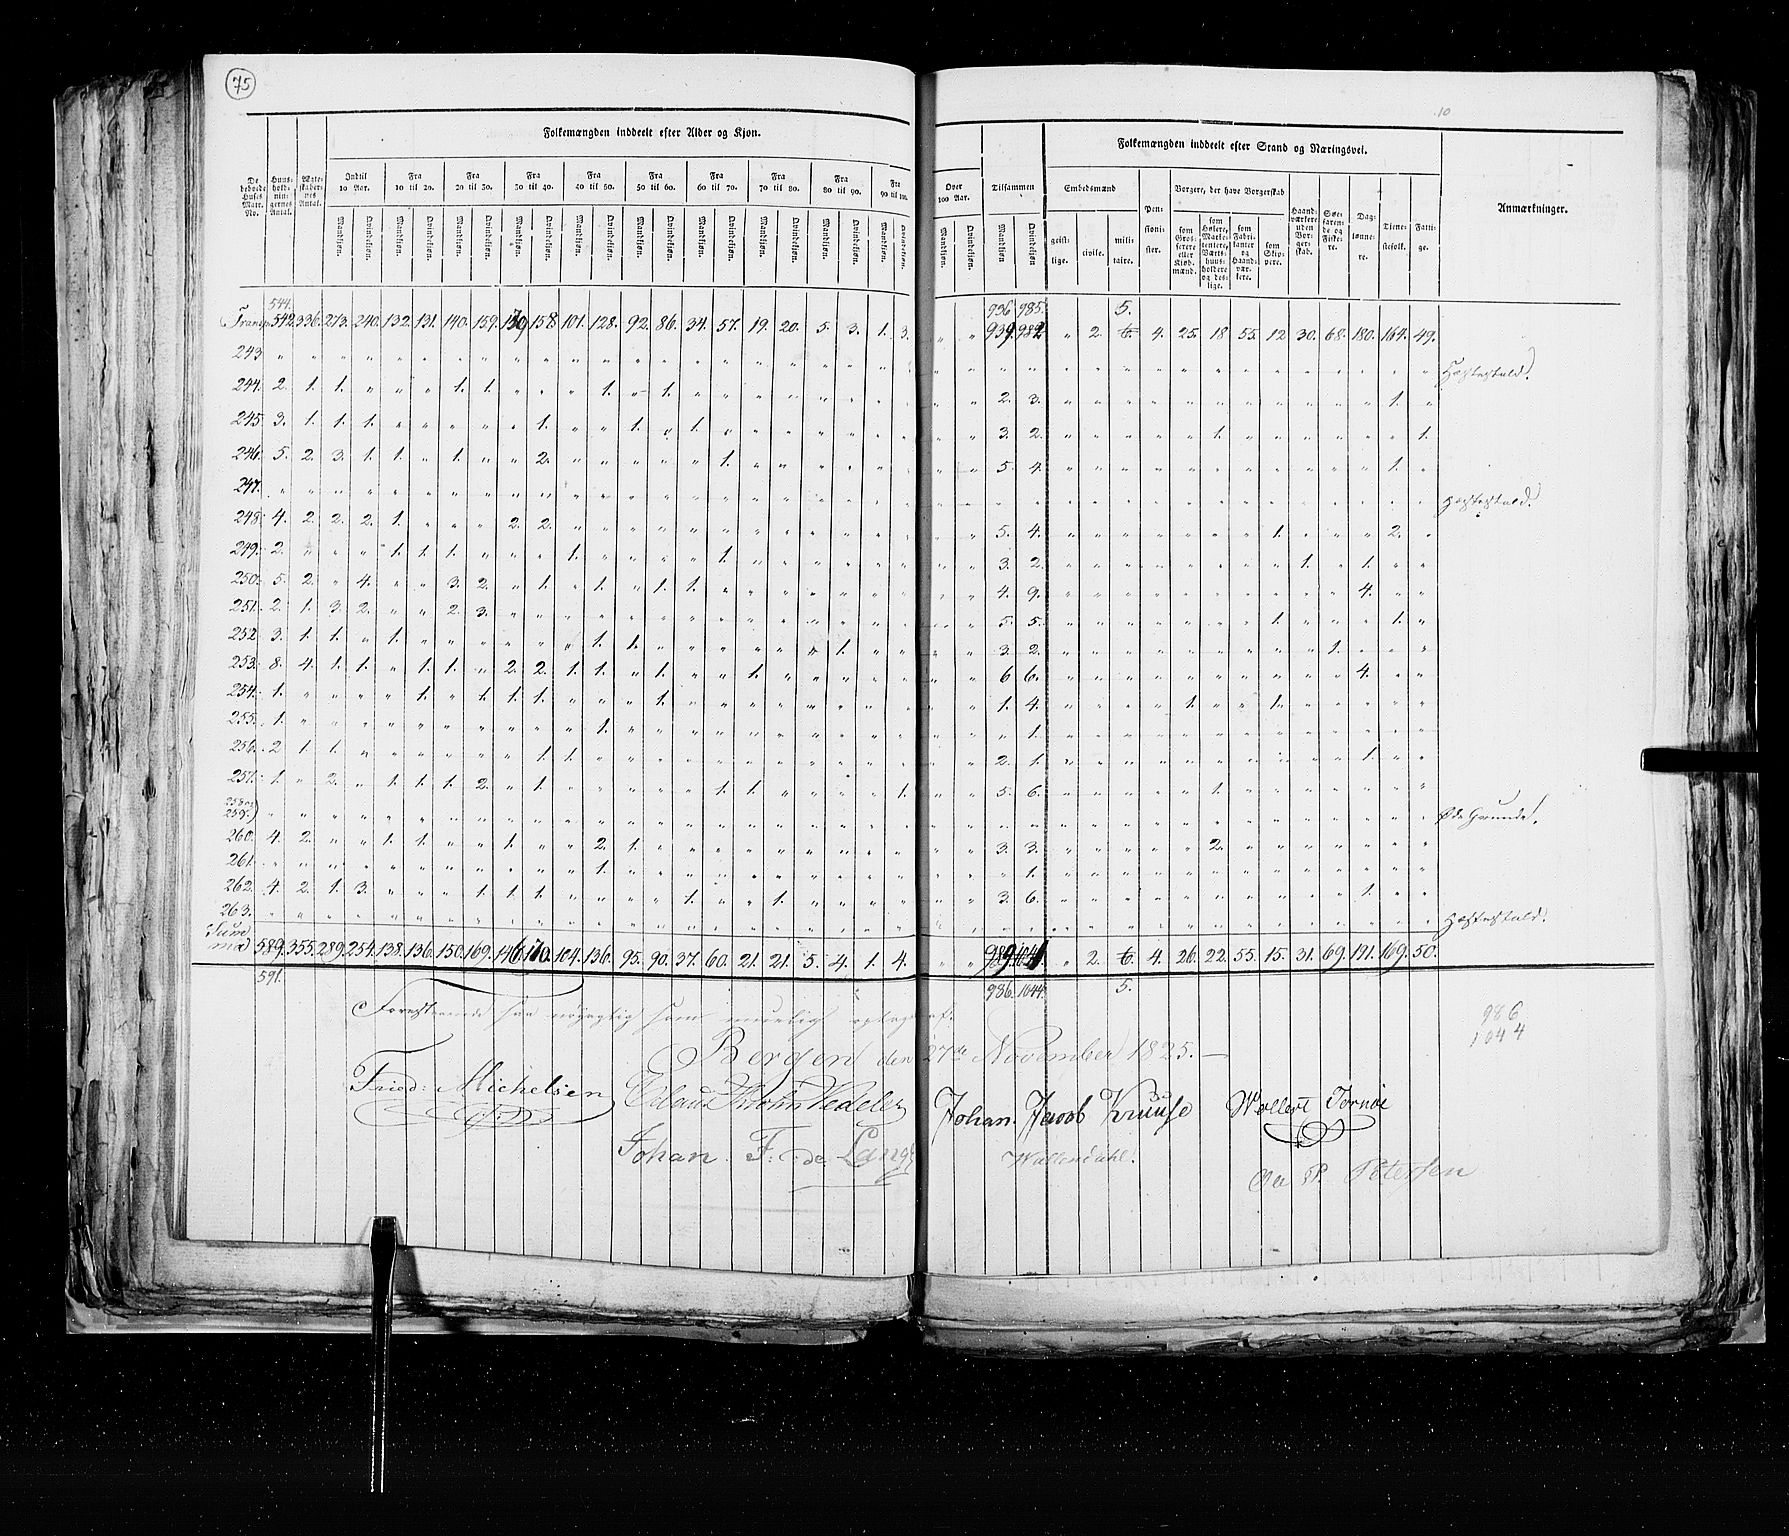 75
10
Folkemængden inddeelt efter Alder og Kjøn.
Folkemængden inddeelt efter Stand og Næringsvei.
De bebyede Huses Matr. No. | Huus-hold-nin-gernes Antal. | Ægte-skaber-nes Antal. | Indtil 10 Aar. | Fra 10 til 20. | Fra 20 til 30. | Fra 30 til 40. | Fra 40 til 50. | Fra 50 til 60. | Fra 60 til 70. | Fra 70 til 80. | Fra 80 til 90. | Fra 90 til 100. | Over 100 Aar. | Tilsammen | Embedsmænd | Pen-sioni-ster. | Borgere, der have Borgerskab | Haand-værkere uden Bor-ger-skab. | Søe-farende og Fiske-re. | Dag-lønne-re. | Tiene-stefolk. | Fatti-ge. | Anmærkninger.
Mandkjøn. Qvindekjøn.
geist-lige. | civile. | mili-taire. | som Gros-serere eller Kiøb-mænd. | som Høkere, Marke-tentere, Værts-huus-holdere og des-lige. | som Fabri-kanter og Haand-vær-kere. | som Skip-pere.
544. 936 985. 5.
Transp. 542. 336. 273. 240. 132. 131. 140. 159. 139 158 101. 128. 92. 86. 34. 57. 19. 20. 5. 3. 1. 3. " " 939. 982 " 2. 6. 4. 25. 18 55. 12 30. 68. 180. 164. 49.
243 Hestestald.
244. 2. 1. 1. " " " 1. 1. " " " 1. " 1. " " " " " " " " " " 2. 3. " " " " " " " " " " " 1. "
245. 3. 1. 1. 1. " " " " " 1. " " 1. " 1. " " " " " " " " " 3. 2. " " " " " 1. " " " " " " 1.
246. 5. 2. 3. 1. 1. " 1. " " 2. " " " " " 1. " " " " " " " " 5. 4. " " " " " " " " " " " 1. "
247. Hestestald.
248. 4. 2. 2. 2. 1. " " " 2. 2. " " " " " " " " " " " " " " 5. 4. " " " " " " " 1. " " " 2. "
249. 2. " " " 1. 1. 1. " " " 1. " " " " 1. " " " " " " " " 3. 2. " " " " " " " " 1. " 1. " "
250. 5. 2. " 4. " " 3. 2. " 1. " 1. " 1. 1. " " " " " " " " " 4. 9. " " " " " " " " " " 4. " "
251. 2. 1. 3. 2. " " 2. 3. " " " " " " " " " " " " " " " " 5. 5. " " " " " " " 1. " " " 1. "
252 3. 1. 1. " 1. " " " " " " 1. 1. " " " " " " 1. " " " " 3. 2. " " " " " " " " " 1. " " "
253. 8. 4. 1. 1. " 1. 1. " 2. 2. 1. 1. " 1. " " 1. " " " " " " " 6 6. " " " " " " " " " " 4. " "
254. 1. " " " " 1. " 1. 1. 1. " " " 1. " " " " " " " " " " 1. 4. " " " " 1. " " 1. " " " " "
255. 1. " " " " " " " " " " 1. " " " " " " " " " " " " " 1. " " " " " " " " " " " " "
256. 2 1. 1. " " " " " " 1. 1. " " " " " " " " " " " " " 2. 1. " " " " " " " " " " 1. " "
257. 1. " 2. " 1. 1. 1. 2. " 1. " " " " " 1. 1. " " " " 1. " " 5. 6. " " " " " 1. " " " " " " "
258 og 259.) Øde Grunde.
260. 4. 2. " " 1. 1. " " 1. " " 2. 1. " " " " " " " " " " " 3. 3. " " " " " 2. " " " " " " "
261. " " " " " " " " " " " 1. " " " " " " " " " " " " " 1. " " " " " " " " " " " " "
262. 4. 2. 1. 3. " " " 1. 1. 1. " " " " 1. " " 1. " " " " " " 3. 6. " " " " " " " " " " 1. " "
263. Hestestald.
Summa 589. 355. 289. 254. 138. 136. 150. 169. 146. 170. 104. 136. 95. 90. 37. 60. 21. 21. 5. 4. 1. 4. " " 989. 1041 " 2. 6. 4. 26. 22. 55. 15. 31. 69. 191. 169. 50.
591. 986. 1044. 5.
986
1044
saa nøyagtig som muelig
Bergen den 27de November 1825.
Fried: Michelsen
Johan Jacob Kruuse
Wollert
Johan F. de Lange
Wallendahl.
Ole P. Petersen